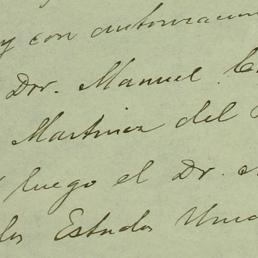 y con autorización
Dor. Manuel
Martinez del
luego el Dr.
los Estados Unid